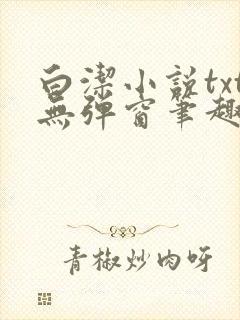 白潔小說txt
無彈窗筆趣
青椒炒肉呀